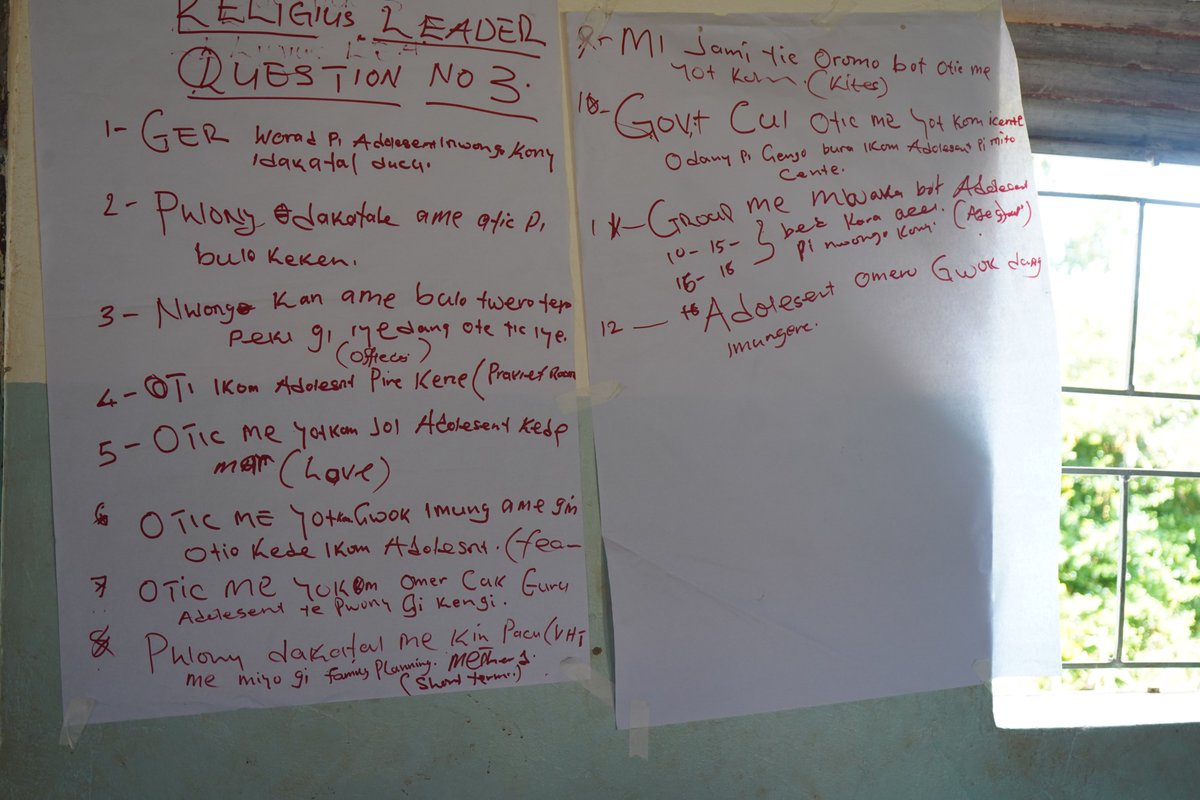 RELIGIUS LEADER
QUESTION NO 3.
1- GER Worad Pi Adolesent Inwongo Kony
Idakatal ducu.
2- PWONY dakatale ame otic Pi
bulo keken.
3- NWONGO kan ame bulo twero tero
Peki gi iye dang ote tic iye.
(Offices)
4- OTI IKom Adolesnt Pire Kene (Praviet Room
5- OTIC ME YOTKOM JOL Adolesent Kede
mar (Love)
6 OTIC ME YOTKOM Gwok Imung ame gin
Otio Kede IKom Adolesnt. (fea-
7 OTIC ME YOKOM omer Cak Guru
Adolesent te Pwony gi Kengi.
8 PWONY dakatal me Kin Pacu (VHT
me miyo gi family Planning. Methers.
(Short term.)
9- MI Jami tic Oromo bot Otic me
Yot Kom (Kites)
10- GOVT CUL OTIC me Yot Kom icente
Odany Pi Gengo bura IKom Adolesent Pi mito
Cente.
11- GROUP me MWaka bot Adolesent
10-15- } bed Kora acel. (Age group)
15-18 Pi nwongo Kony.
12 - Adolesent Omero Gwok dang
Imungere.